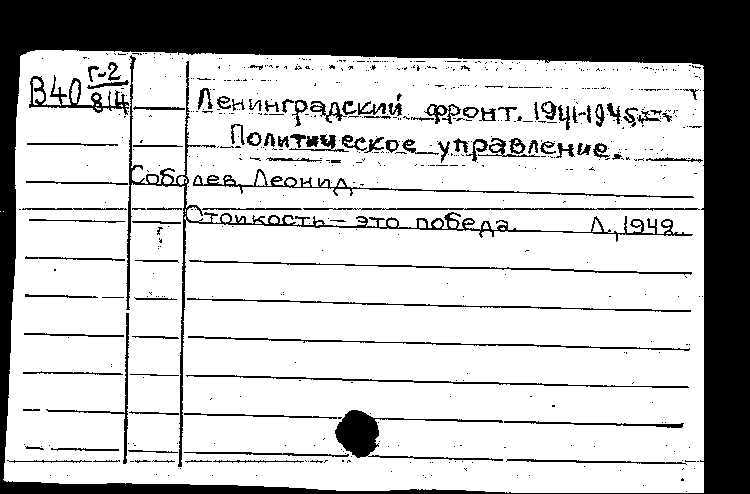 В40 Г-2/814
Ленинградский фронт. 1941-1945.
Политическое управление.
Соболев, Леонид.
Стойкость – это победа. Л., 1942.